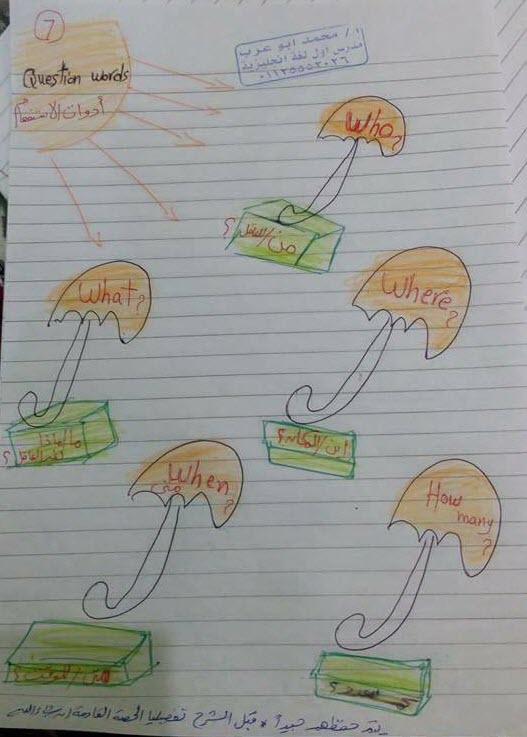 7
Question words
أدوات الاستفهام
أ/ محمد ابو عرب
مدرس اول لغة انجليزية
Who?
من/للعاقل؟
What?
ما/ماذا
لغير العاقل؟
Where?
اين/للمكان؟
When
متى
?
How
many
?
متى/للوقت؟
كم
يتم حفظهم جيداً * قبل الشرح تفصيليا الحصة القادمة ان شاء الله